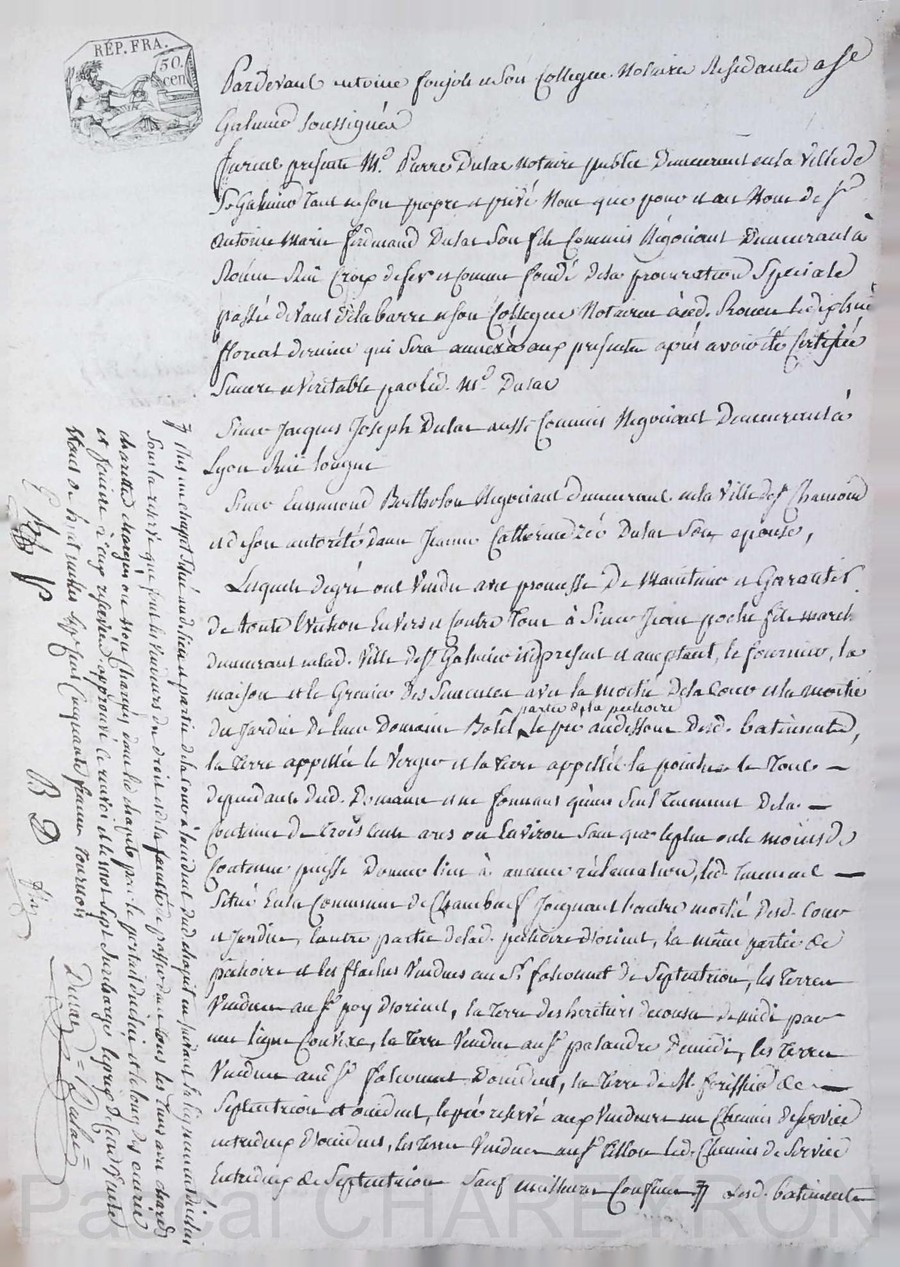 RÉP. FRA.
50. cen
Pardevant antoine foujols et son Collegue Notaires Residants a St
Galmier soussignés
furent presents Me. Pierre Dulac Notaire public Demeurant en la ville de
St Galmier tant en son propre et privé Nom que pour et au Nom de sr
antoine Marie ferdinand Dulac Son fils Commis Négociant Demeurant à
Rouen Rue Croix de fer et comme fondé de sa procuration Speciale
passée devant Delabarre et son Collegue Notaires aud. Rouen le dix huit
floreal dernier qui sera annexée aux presentes après avoir été Certifiée
Sincere et Veritable par led. Me. Dulac
Sieur Jacques Joseph Dulac aussi Commis Negociant Demeurant à
Lyon Rue longue
Sieur Ennemond Bertholon Négociant demeurant en la Ville de St Chamond
et de son autorité dame Jeanne Catherine Dulac Son epouse,
Lesquels de gré ont Vendu avec promesse De Maintenir et Garantir
de toute Eviction Envers et Contre Tous à Sieur Jean poche fils march.
demeurant en lad. Ville de St Galmier ici present et acceptant, le fournier, la
maison et le Grenier des avec la moitié de la Cour et la moitié
partie de la pechoire
du Jardin de leur Domaine le pré audessous desd. batiments,
la Terre appellée le Verger et la terre appellée la pointe le Tout —
dependants dud. Domaine et ne formant qu'un Seul Tenement De la —
Contenue de Trois Cents ares ou Environ Sans que le plus ou le moins de
Contenue puisse Donner lieu à aucune réclamation, led. Tenement —
Situé En la Commune de Chambœuf Joignant l'autre moitié desd. Cour
et Jardin, l'autre partie de lad. pechoire d'orient, la même partie de
péchoire et les Vendues au Sr. falconnet de Septentrion, les terres
Vendues au Sr poy d'orient, la terre des heritiers de midi par
une ligne Convexe, la Terre Vendue au Sr palandre De midi, les Terres
Vendues aud. Sr falconnet D'occident, la Terre de M. de —
Septentrion et occident, le pré reservé aux Vendeurs un Chemin de Service
entredeux d'occident, les terres Vendues au Sr led. Chemin de Service
Entredeux de Septentrion Sauf meilleurs Confins # desd. batiments
# plus un chapit situé audit lieu et partie de la Cour à l'occident dud. chapit en suivant l'alignement d'icelui
Sous la reserve que font les Vendeurs du droit et de la faculté de passer dans tous les tems avec chars
charettes chargés ou non chargés dans led. chapit par le portail d'icelui et le long des écurie
et feniere à eux reservés approuvé ce renvoi et le mot Sept surchargé le prix de la Vente
étant de huit milles Sept Cent Cinquante francs tournois
B D
Dulac = Dulac =
Pascal CHAREYRON